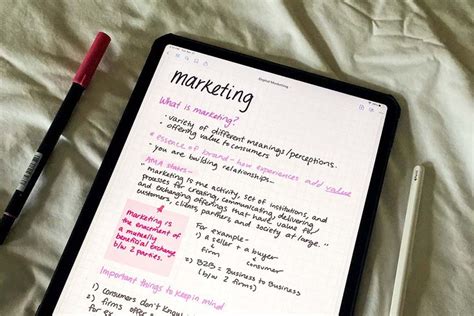 Digital Marketing
marketing
What is marketing?
• variety of different meanings/perceptions.
• offering value to consumers
* essence of brand - how experiences add value
• you are building relationships -
AMA states -
"marketing is the activity, set of institutions, and
processes for creating, communicating, delivering,
and exchanging offerings that have value for
customers, clients, partners, and society at large."
marketing is
the enactment of
a mutually
beneficial exchange
b/w 2 parties.
For example -
1) a seller + a buyer
firm
consumer
2) B2B = Business to Business
(b/w 2 firms)
Important things to keep in mind
1) consumers don't know
2) firms offer